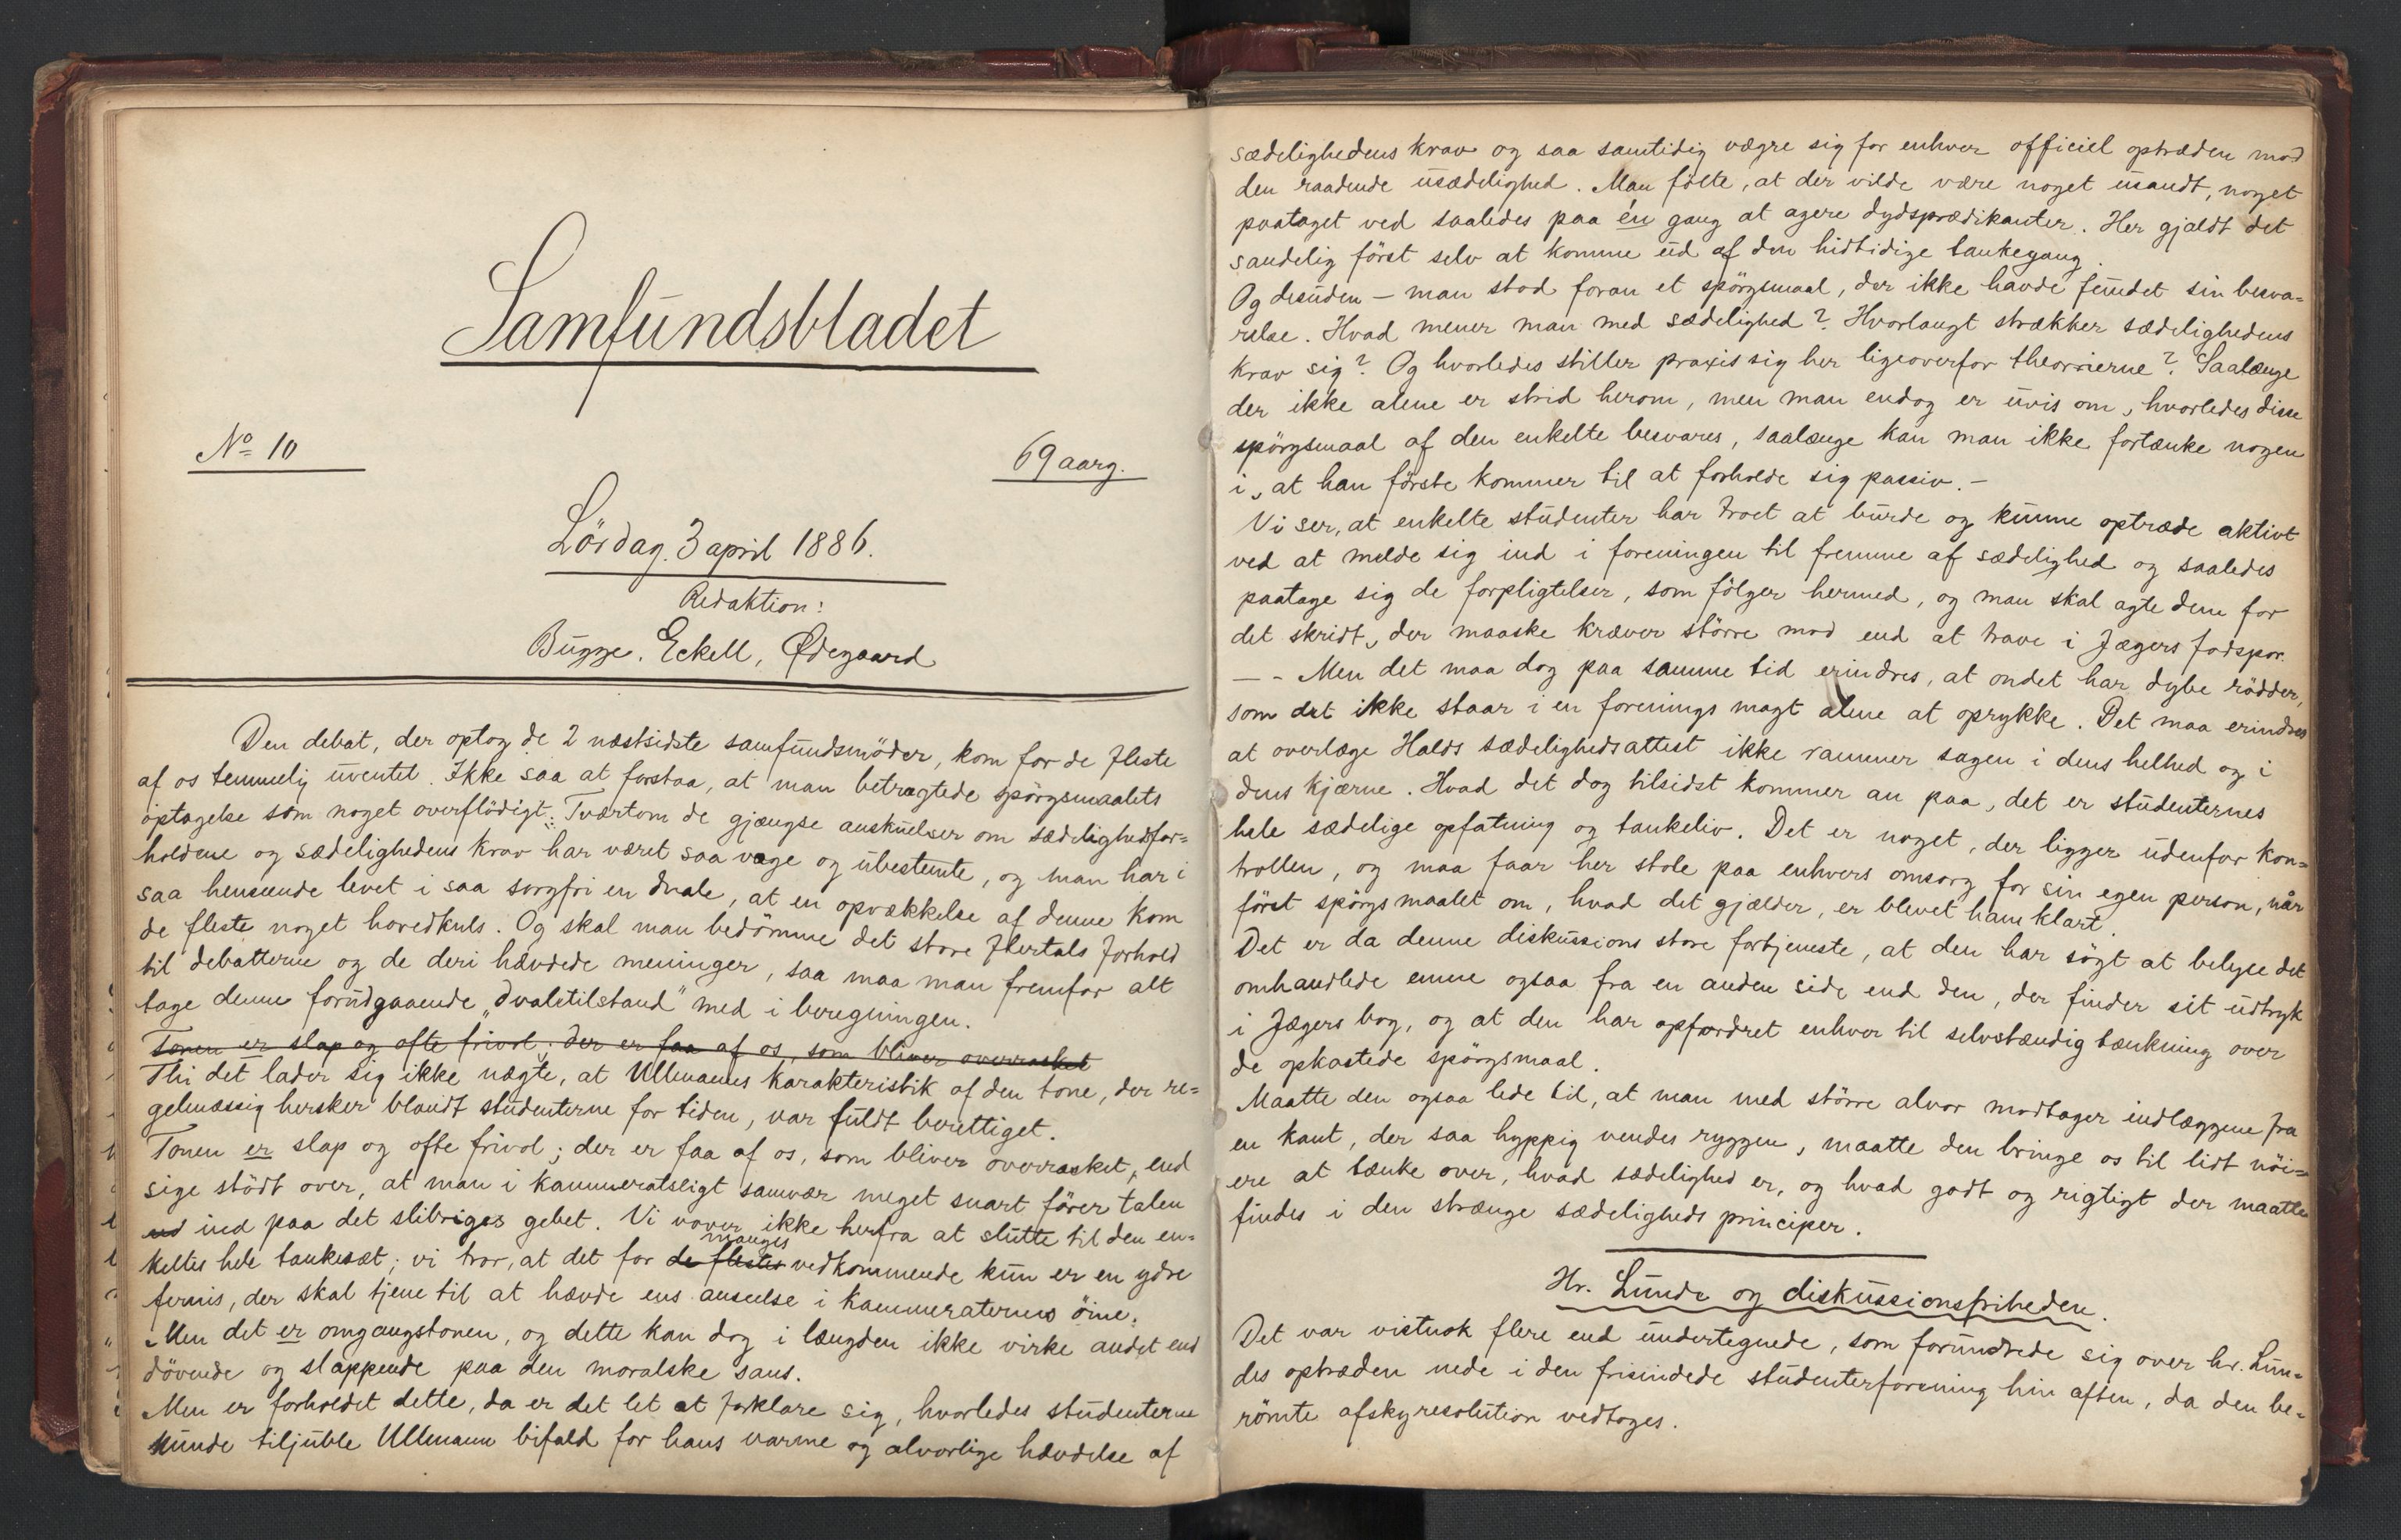 Samfundsbladet
No 10
69 aarg.
Lördag 3 april 1886.
Redaktion:
Bugge, Eckell, Ødegaard
Den debat, der optog de 2 næstsidste samfundsmöder, kom for de fleste
af os temmelig uventet. Ikke saa at forstaa, at man betragtede spörgsmaalets
optagelse som noget overflödigt: Tvertom de gjængse anskuelser om sædelighedsfor=
holdene og sædelighedens krav har været saa vage og ubestemte, og man har i
saa henseende levet i saa sorgfri en dvale, at en opvækkelse af denne kom
de fleste noget hovedkuls. Og skal man bedömme det store flertals forhold
til debatterne og de deri hævdede meninger, saa maa man fremfor alt
tage denne forudgaaende „dvaletilstand" med i beregningen.
Tonen er slap og ofte frivol; der er faa af os, som bliver overrasket
Thi det lader sig ikke nægte, at Ullmanns karakteristik af den tone, der re=
gelmæssig hersker blandt studenterne for tiden, var fuldt berettiget.
Tonen er slap og ofte frivol; der er faa af os, som bliver overrasket, end
sige stödt over, at man i kammeratsligt samvær meget snart förer talen
ud ind paa det slibriges gebet. Vi vover ikke herfra at slutte til den en=
manges
keltes hele tankesæt; vi tror, at det for de flestes vedkommende kun er en ydre
fernis, der skal tjene til at hævde ens anseelse i kammeraternes öine.
Men det er omgangstonen, og dette kan dog i længden ikke virke andet end
dövende og slappende paa den moralske sans.
Men er forholdet dette, da er det let at forklare sig, hvorledes studenterne
kunde tiljuble Ullmann bifald for hans varme og alvorlige hævdelse af
sædelighedens krav og saa samtidig vægre sig for enhver officiel optræden mod
den raadende usædelighed. Man fölte, at der vilde være noget usandt, noget
paataget ved saaledes paa én gang at agere dydsprædikanter. Her gjældt det
sandelig först selv at komme ud af den hidtidige tankegang.
Og desuden – man stod foran et spörgsmaal, der ikke havde fundet sin besva=
relse. Hvad mener man med sædelighed? Hvorlangt strækker sædelighedens
krav sig? Og hvorledes stiller praxis sig her ligeoverfor theorierne? Saalænge
der ikke alene er strid herom, men man endog er uvis om, hvorledes disse
spörgsmaal af den enkelte besvares, saalænge kan man ikke fortænke nogen
i, at han förste kommer til at forholde sig passiv. –
Vi ser, at enkelte studenter har troet at burde og kunne optræde aktivt
ved at melde sig ind i foreningen til fremme af sædelighed og saaledes
paatage sig de forpligtelser, som fölger hermed, og man skal agte dem for
det skridt, der maaske kræver större mod end at trave i Jægers fodspor.
– – Men det maa dog paa samme tid erindres, at ondet har dybe rödder,
som det ikke staar i en forenings magt alene at oprykke. Det maa erindres
at overlæge Halds sædelighedsattest ikke rammer sagen i dens helhed og i
dens kjærne. Hvad det dog tilsidst kommer an paa, det er studenternes
hele sædelige opfatning og tankeliv. Det er noget, der ligger udenfor kon=
trollen, og maa faar her stole paa enhvers omsorg for sin egen person, når
först spörgsmaalet om, hvad det gjælder, er blevet ham klart.
Det er da denne diskussions store fortjeneste, at den har sögt at belyse det
omhandlede emne ogsaa fra en anden side end den, der finder sit udtryk
i Jægers bog, og at den har opfordret enhver til selvstændig tænkning over
de opkastede spörgsmaal.
Maatte den ogsaa lede til, at man med större alvor modtager indlæggene fra
en kant, der saa hyppig vendes ryggen, maatte den bringe os til lidt nöi=
ere at tænke over, hvad sædelighed er, og hvad godt og rigtigt der maatte
findes i den strænge sædeligheds principer.
Hr. Lunde og diskussionsfriheden.
Det var vistnok flere end undertegnede, som forundrede sig over hr. Lun=
des optræden nede i den frisindede studenterforening hin aften, da den be=
römte afskyresolution vedtoges.